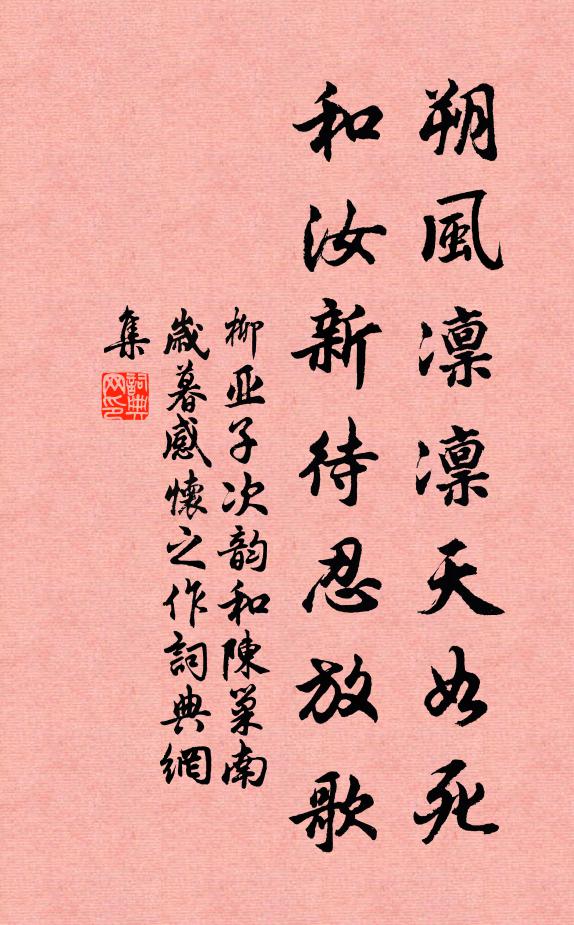 朔風凛凛天如死
和汝新待忍放歌
柳亚子次韵和陳巢南
歳暮感懷之作詞典網
集
詞典网印